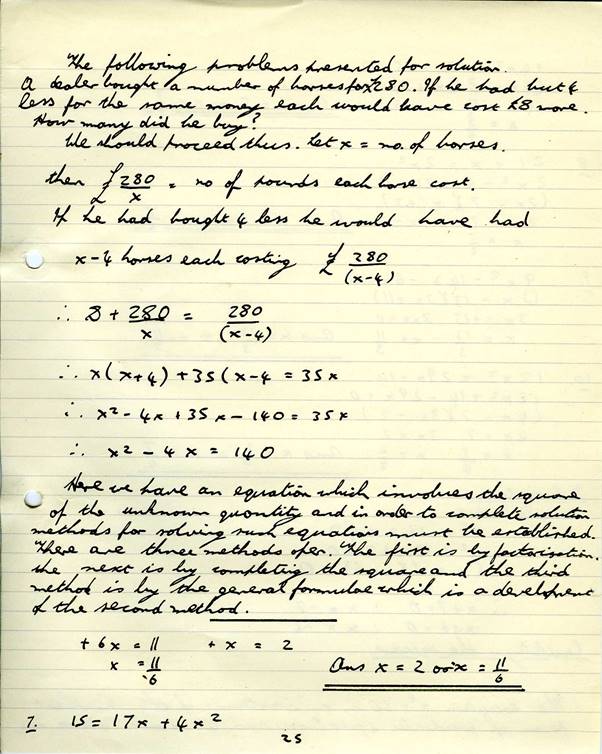 The following problems presented for solution.
A dealer bought a number of horses for £280. If he had but 4
less for the same money each would have cost £8 more.
How many did he buy?
We should proceed thus. Let x = no. of horses.
then £ 280/x = no of pounds each horse cost.
If he had bought 4 less he would have had
x-4 horses each costing £ 280/(x-4)
∴ 8 + 280/x = 280/(x-4)
∴ x(x+4) + 35(x-4 = 35x
∴ x² - 4x + 35x - 140 = 35x
∴ x² - 4x = 140
Here we have an equation which involves the square
of the unknown quantity and in order to complete solution
methods for solving such equations must be established.
There are three methods open. The first is by factorisation.
the next is by completing the square and the third
method is by the general formulae which is a development
of the second method.
+6x = 11 +x = 2
x = 11/6 Ans x = 2 or x = 11/6
7. 15 = 17x + 4x²
25